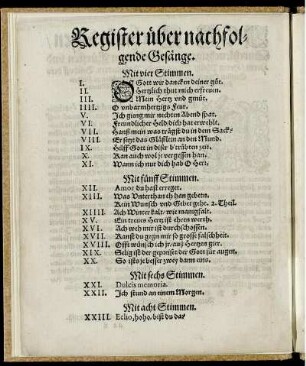 Register über nachfol-
gende Gesänge.
Mit vier Stimmen.
I. O Gott wir dancken deiner güt.
II. Hertzlich thut mich erfrewen.
III. Mein Hertz und gmüt.
IIII. O unbarmhertzigs Feur.
V. Ich gieng mir nechten Abend spat.
VI. Freundtlicher Held dich hat erwehlt.
VII. Hanß mein was trägst du in dem Sack.
VIII. Er setzt das Gläßlein an den Mund.
IX. Hilff Gott in diser b'trübten zeit.
X. Kan auch wol je vergessen han.
XI. Wann ich nur dich hab O Herr.
Mit fünff Stimmen.
XII. Amor du hast erreget.
XIII. Was Unterhan ich han gethetn.
Kein Wunsch und Geber gehe. 2. Theil.
XIIII. Ach Winter kalt, wie mangfalt.
XV. Ein trewe Hertz ist ehrn werth.
XVI. Ach weh mir ist durchschossen.
XVII. Kanst du gegn mir so grosse falscheit.
XVIII. Offt wünsch ich jr, auß Hertzen gier.
XIX. Selig ist der gepreiset der Gott für augen.
XX. So ists je besser zwey dann eins.
Mit sechs Stimmen.
XXI. Dulcis memoria.
XXII. Ich stund an einem Morgen.
Mit acht Stimmen.
XXIII. Echo, hoho, bist du da?